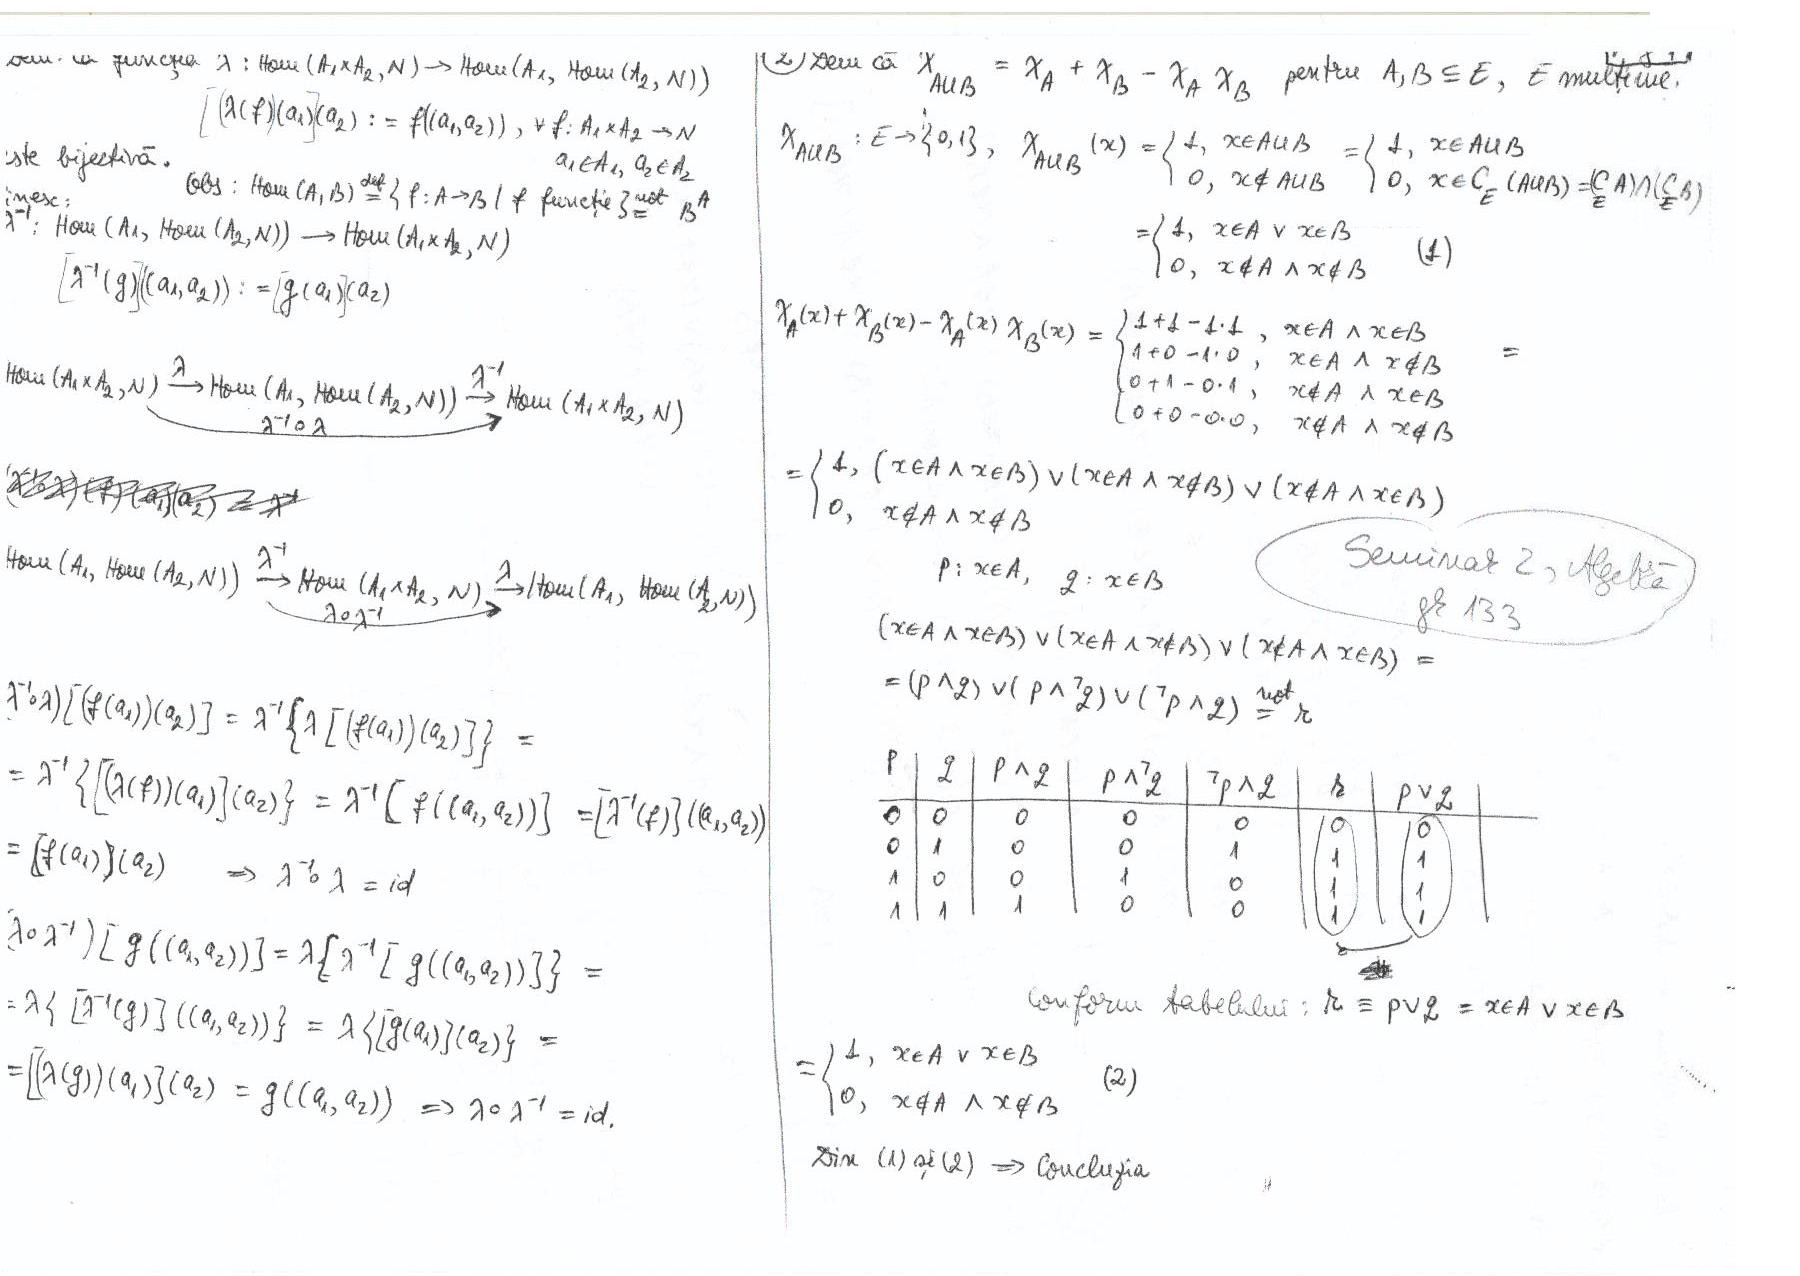 Dem. că funcția λ : Hom(A₁×A₂, N) → Hom(A₁, Hom(A₂, N))
[(λ(f)(a₁)](a₂) := f((a₁,a₂)), ∀ f: A₁×A₂ → N
a₁∈A₁, a₂∈A₂
este bijectivă.
Obs : Hom(A,B) def= { f: A→B / f funcție } not= B^A
λ⁻¹: Hom(A₁, Hom(A₂,N)) → Hom(A₁×A₂, N)
[λ⁻¹(g)]((a₁,a₂)) := [g(a₁)](a₂)
Hom(A₁×A₂, N) λ→ Hom(A₁, Hom(A₂, N)) λ⁻¹→ Hom(A₁×A₂, N)
λ⁻¹∘λ
Hom(A₁, Hom(A₂, N)) λ⁻¹→ Hom(A₁×A₂, N) λ→ Hom(A₁, Hom(A₂,N))
λ∘λ⁻¹
λ⁻¹∘λ)[(f(a₁))(a₂)] = λ⁻¹{λ[(f(a₁))(a₂)]} =
= λ⁻¹{[(λ(f))(a₁)](a₂)} = λ⁻¹[f((a₁,a₂))] = [λ⁻¹(f)]((a₁,a₂))
= [f(a₁)](a₂) ⇒ λ⁻¹∘λ = id
λ∘λ⁻¹)[g((a₁,a₂))] = λ{λ⁻¹[g((a₁,a₂))]} =
= λ{[λ⁻¹(g)]((a₁,a₂))} = λ{[g(a₁)](a₂)} =
= [(λ(g))(a₁)](a₂) = g((a₁,a₂)) ⇒ λ∘λ⁻¹ = id.
(2) Dem că χ_A∪B = χ_A + χ_B − χ_A χ_B pentru A,B ⊆ E, E mulțime.
χ_A∪B : E→{0,1}, χ_A∪B(x) = { 1, x∈A∪B = { 1, x∈A∪B
0, x∉A∪B 0, x∈C_E(A∪B) = (C_E A)∩(C_E B)
= { 1, x∈A ∨ x∈B
0, x∉A ∧ x∉B (1)
χ_A(x) + χ_B(x) − χ_A(x) χ_B(x) = { 1+1−1·1, x∈A ∧ x∈B =
1+0−1·0, x∈A ∧ x∉B
0+1−0·1, x∉A ∧ x∈B
0+0−0·0, x∉A ∧ x∉B
= { 1, (x∈A ∧ x∈B) ∨ (x∈A ∧ x∉B) ∨ (x∉A ∧ x∈B)
0, x∉A ∧ x∉B
Seminar 2, Algebră
gr 133
p: x∈A, q: x∈B
(x∈A ∧ x∈B) ∨ (x∈A ∧ x∉B) ∨ (x∉A ∧ x∈B) =
= (p∧q) ∨ (p∧⁷q) ∨ (⁷p∧q) not= r
p | q | p∧q | p∧⁷q | ⁷p∧q | r | p∨q |
0 0 0 0 0 0 0
0 1 0 0 1 1 1
1 0 0 1 0 1 1
1 1 1 0 0 1 1
conform tabelului: r ≡ p∨q = x∈A ∨ x∈B
= { 1, x∈A ∨ x∈B
0, x∉A ∧ x∉B (2)
Din (1) și (2) ⇒ Concluzia